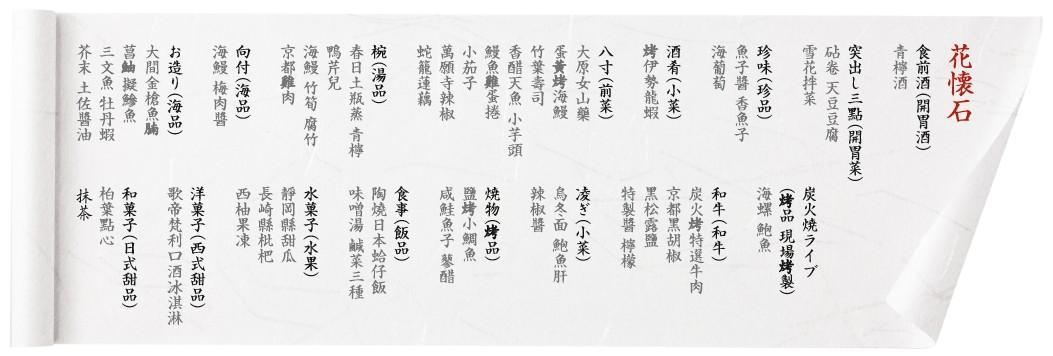 花懷石
食前酒(開胃酒)
青檸酒
突出し三點(開胃菜)
砧卷 天豆豆腐
雪花拌菜
珍味(珍品)
魚子醬 香魚子
海葡萄
酒肴(小菜)
烤伊勢龍蝦
八寸(前菜)
大原女山藥
蛋黃烤海鰻
竹葉壽司
香醋天魚 小芋頭
鰻魚雞蛋捲
小茄子
萬願寺辣椒
蛇籠蓮藕
椀(湯品)
春日土瓶蒸 青檸
鴨芹兒
海鰻 竹筍 腐竹
京都雞肉
向付(海品)
海鰻 梅肉醬
お造り(海品)
大間金槍魚腩
菖鮋 擬鰺魚
三文魚 牡丹蝦
芥末 土佐醬油
炭火焼ライブ
(烤品 現場烤製)
海螺 鮑魚
和牛(和牛)
炭火烤特選牛肉
京都黑胡椒
黑松露鹽
特製醬 檸檬
凌ぎ(小菜)
烏冬面 鮑魚肝
辣椒醬
燒物(烤品)
鹽烤小鯛魚
咸鮭魚子 蓼醋
食事(飯品)
陶燒日本蛤仔飯
味噌湯 鹹菜三種
水菓子(水果)
靜岡縣甜瓜
長崎縣枇杷
西柚果凍
洋菓子(西式甜品)
歌帝梵利口酒冰淇淋
和菓子(日式甜品)
柏葉點心
抹茶